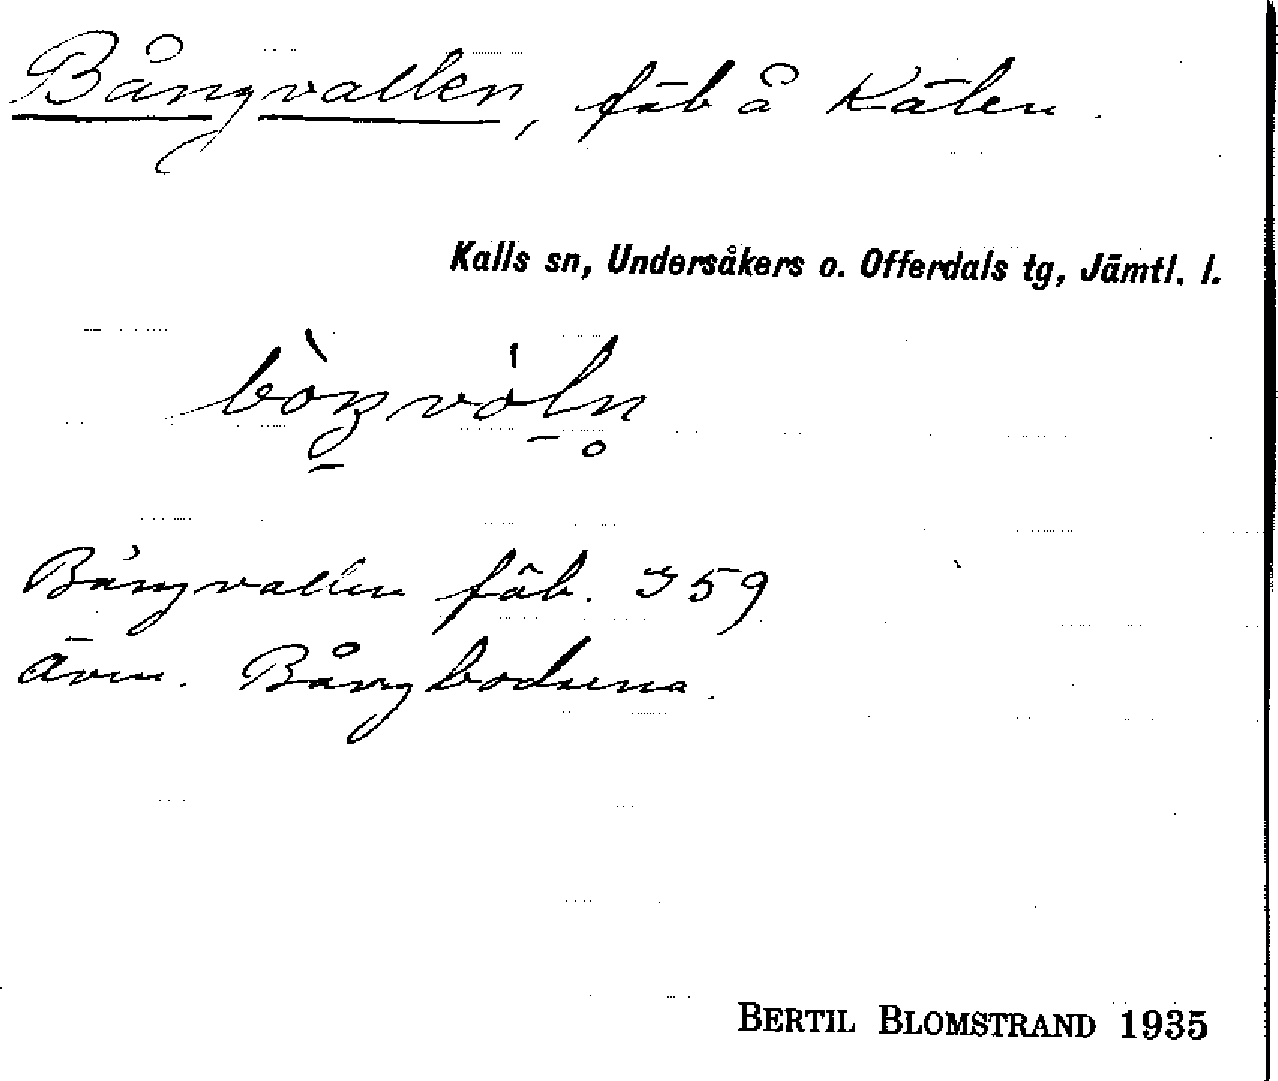 Bångvallen, fäb å Kälen.
Kalls sn, Undersåkers o. Offerdals tg, Jämtl. l.
Bångvallen fäb. I 59
Även. Bångbodarna.
BERTIL BLOMSTRAND 1935